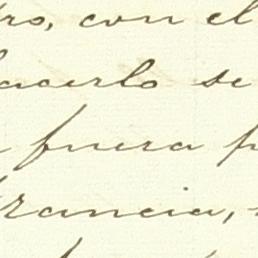 ro, con el
hacerlo se
fuera p
Francia,